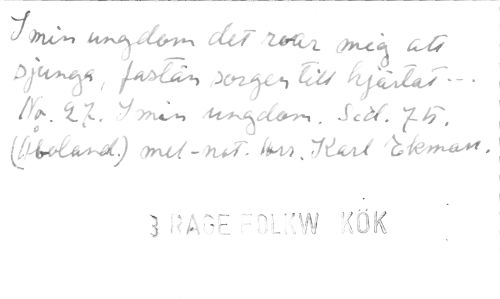 I min ungdom det roar mig att
sjunga, fastän sorgen till hjärtat ---
No. 27. I min ungdom. Sid. 75.
(Åboland.) mel-not. Arr. Karl Ekman.
3 RAGE FOLKW KÖK